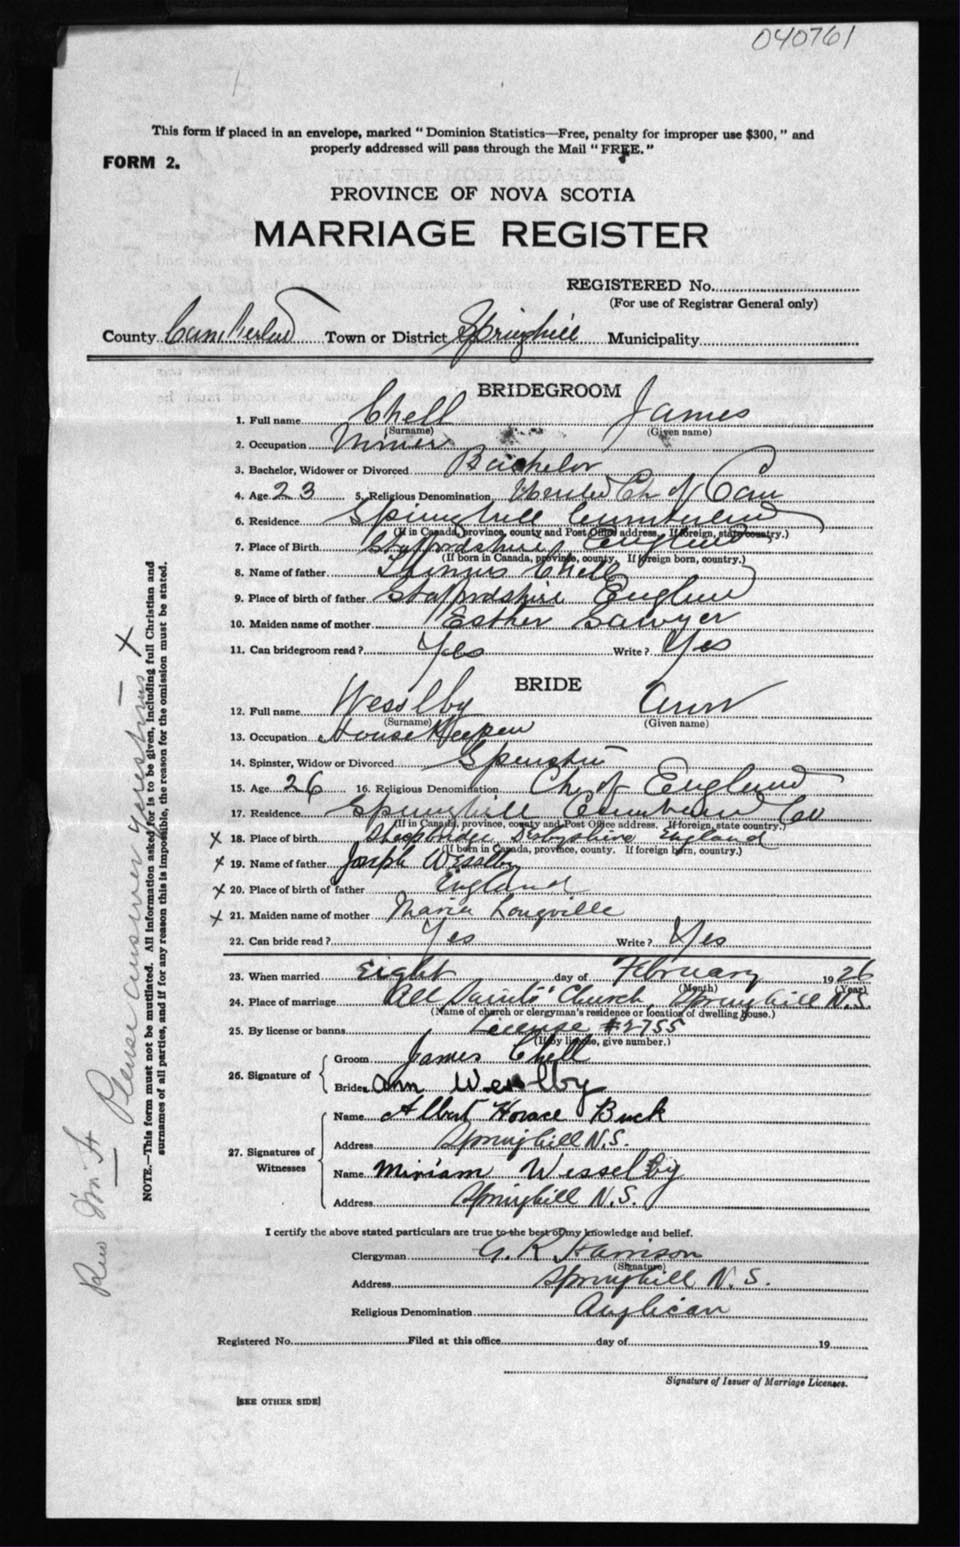 040761
This form if placed in an envelope, marked "Dominion Statistics—Free, penalty for improper use $300," and
properly addressed will pass through the Mail "FREE."
FORM 2.
PROVINCE OF NOVA SCOTIA
MARRIAGE REGISTER
REGISTERED No.
(For use of Registrar General only)
County Cumberland Town or District Springhill Municipality
BRIDEGROOM
1. Full name Chell James
(Surname) (Given name)
2. Occupation Miner
3. Bachelor, Widower or Divorced Bachelor
4. Age 23 5. Religious Denomination United Ch of Can
6. Residence Springhill Cumberland
(If in Canada, province, county and Post Office address. If foreign, state country.)
7. Place of Birth Staffordshire England
(If born in Canada, province, county. If foreign born, country.)
8. Name of father Thomas Chell
9. Place of birth of father Staffordshire England
10. Maiden name of mother Esther Sawyer
11. Can bridegroom read? Yes Write? Yes
BRIDE
12. Full name Wesslby Ann
(Surname) (Given name)
13. Occupation House Keeper
14. Spinster, Widow or Divorced Spinster
15. Age 26 16. Religious Denomination Ch of England
17. Residence Springhill Cumberland Co
(If in Canada, province, county and Post Office address. If foreign, state country.)
x 18. Place of birth Derbyshire England
(If born in Canada, province, county. If foreign born, country.)
x 19. Name of father Joseph Wesslby
x 20. Place of birth of father England
x 21. Maiden name of mother Maria Longville
22. Can bride read? Yes Write? Yes
23. When married Eight day of February 1926
(Month) (Year)
24. Place of marriage All Saints' Church, Springhill N.S.
(Name of church or clergyman's residence or location of dwelling house.)
25. By license or banns License #2755
(If by license, give number.)
26. Signature of
Groom James Chell
Bride Ann Wesslby
27. Signatures of Witnesses
Name Albert Horace Buck
Address Springhill N.S.
Name Miriam Wesselby
Address Springhill N.S.
I certify the above stated particulars are true to the best of my knowledge and belief.
Clergyman G. R. Harrison
(Signature)
Address Springhill N.S.
Religious Denomination Anglican
Registered No. Filed at this office day of 19
Signature of Issuer of Marriage Licenses.
[SEE OTHER SIDE]
NOTE.—This form must not be mutilated. All information asked for is to be given, including full Christian and
surnames of all parties, and if for any reason this is impossible, the reason for the omission must be stated.
Please answer questions x